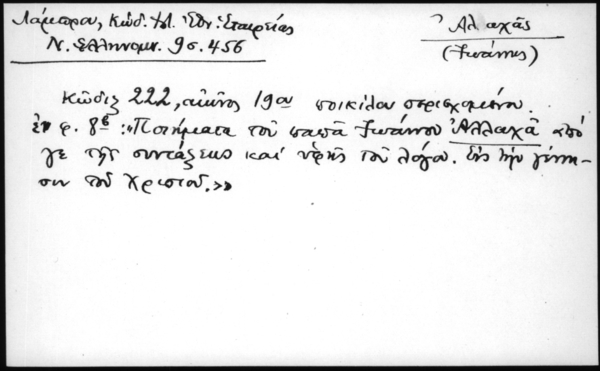 Λάμπρου, Κώδ. Ἱστ. Ἐθν. Ἑταιρείας
Ν. Ἑλληνομν. 9 σ. 456
Ἀλλαχᾶς
(Ἰωάννης)
Κῶδιξ 222, αἰῶνος 19ου ποικίλου περιεχομένου.
ἐν φ. 8β : «Ποιήματα τοῦ παπᾶ Ἰωάννου Ἀλλαχᾶ ἀπό
γε τῆς συντάξεως καὶ τοῦ λόγου. Εἰς τὴν γέννη-
σιν τοῦ Χριστοῦ.»